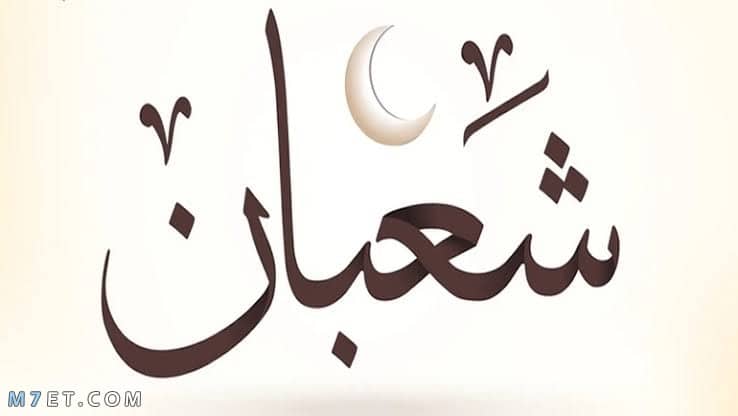 شَعبان
M7ET.COM